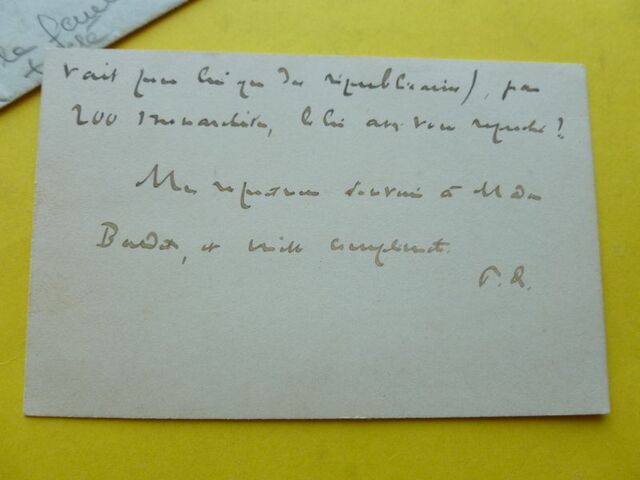 la
vait pour lui que des républicains), par
200 monarchistes, le lui avez vous reproché ?
Mes respectueux souvenirs à Mada
Bardet, et mille compliments.
P. R.